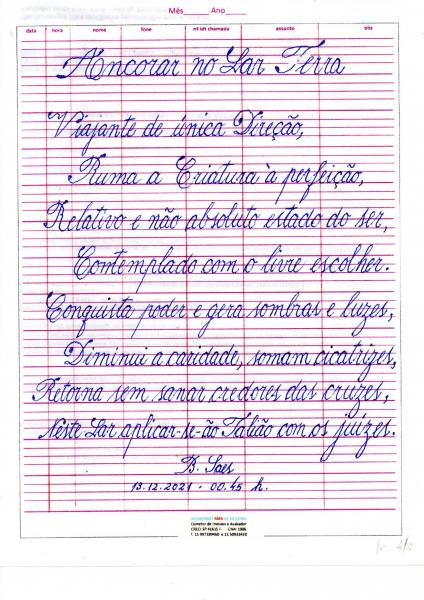 Mês_____ Ano____
data hora nome fone nº idt chamada assunto obs
Ancorar no Lar Terra
Viajante de única Direção,
Ruma a Criatura à perfeição,
Relativo e não absoluto estado do ser,
Contemplado com o livre escolher.
Conquista poder e gera sombras e luzes,
Diminui a caridade, somam cicatrizes,
Retorna sem sanar credores das cruzes,
Neste Lar aplicar-se-ão Talião com os juízes.
B. Saes
13.12.2021 - 00.45 h.
Corretor de Imóveis e Avaliador